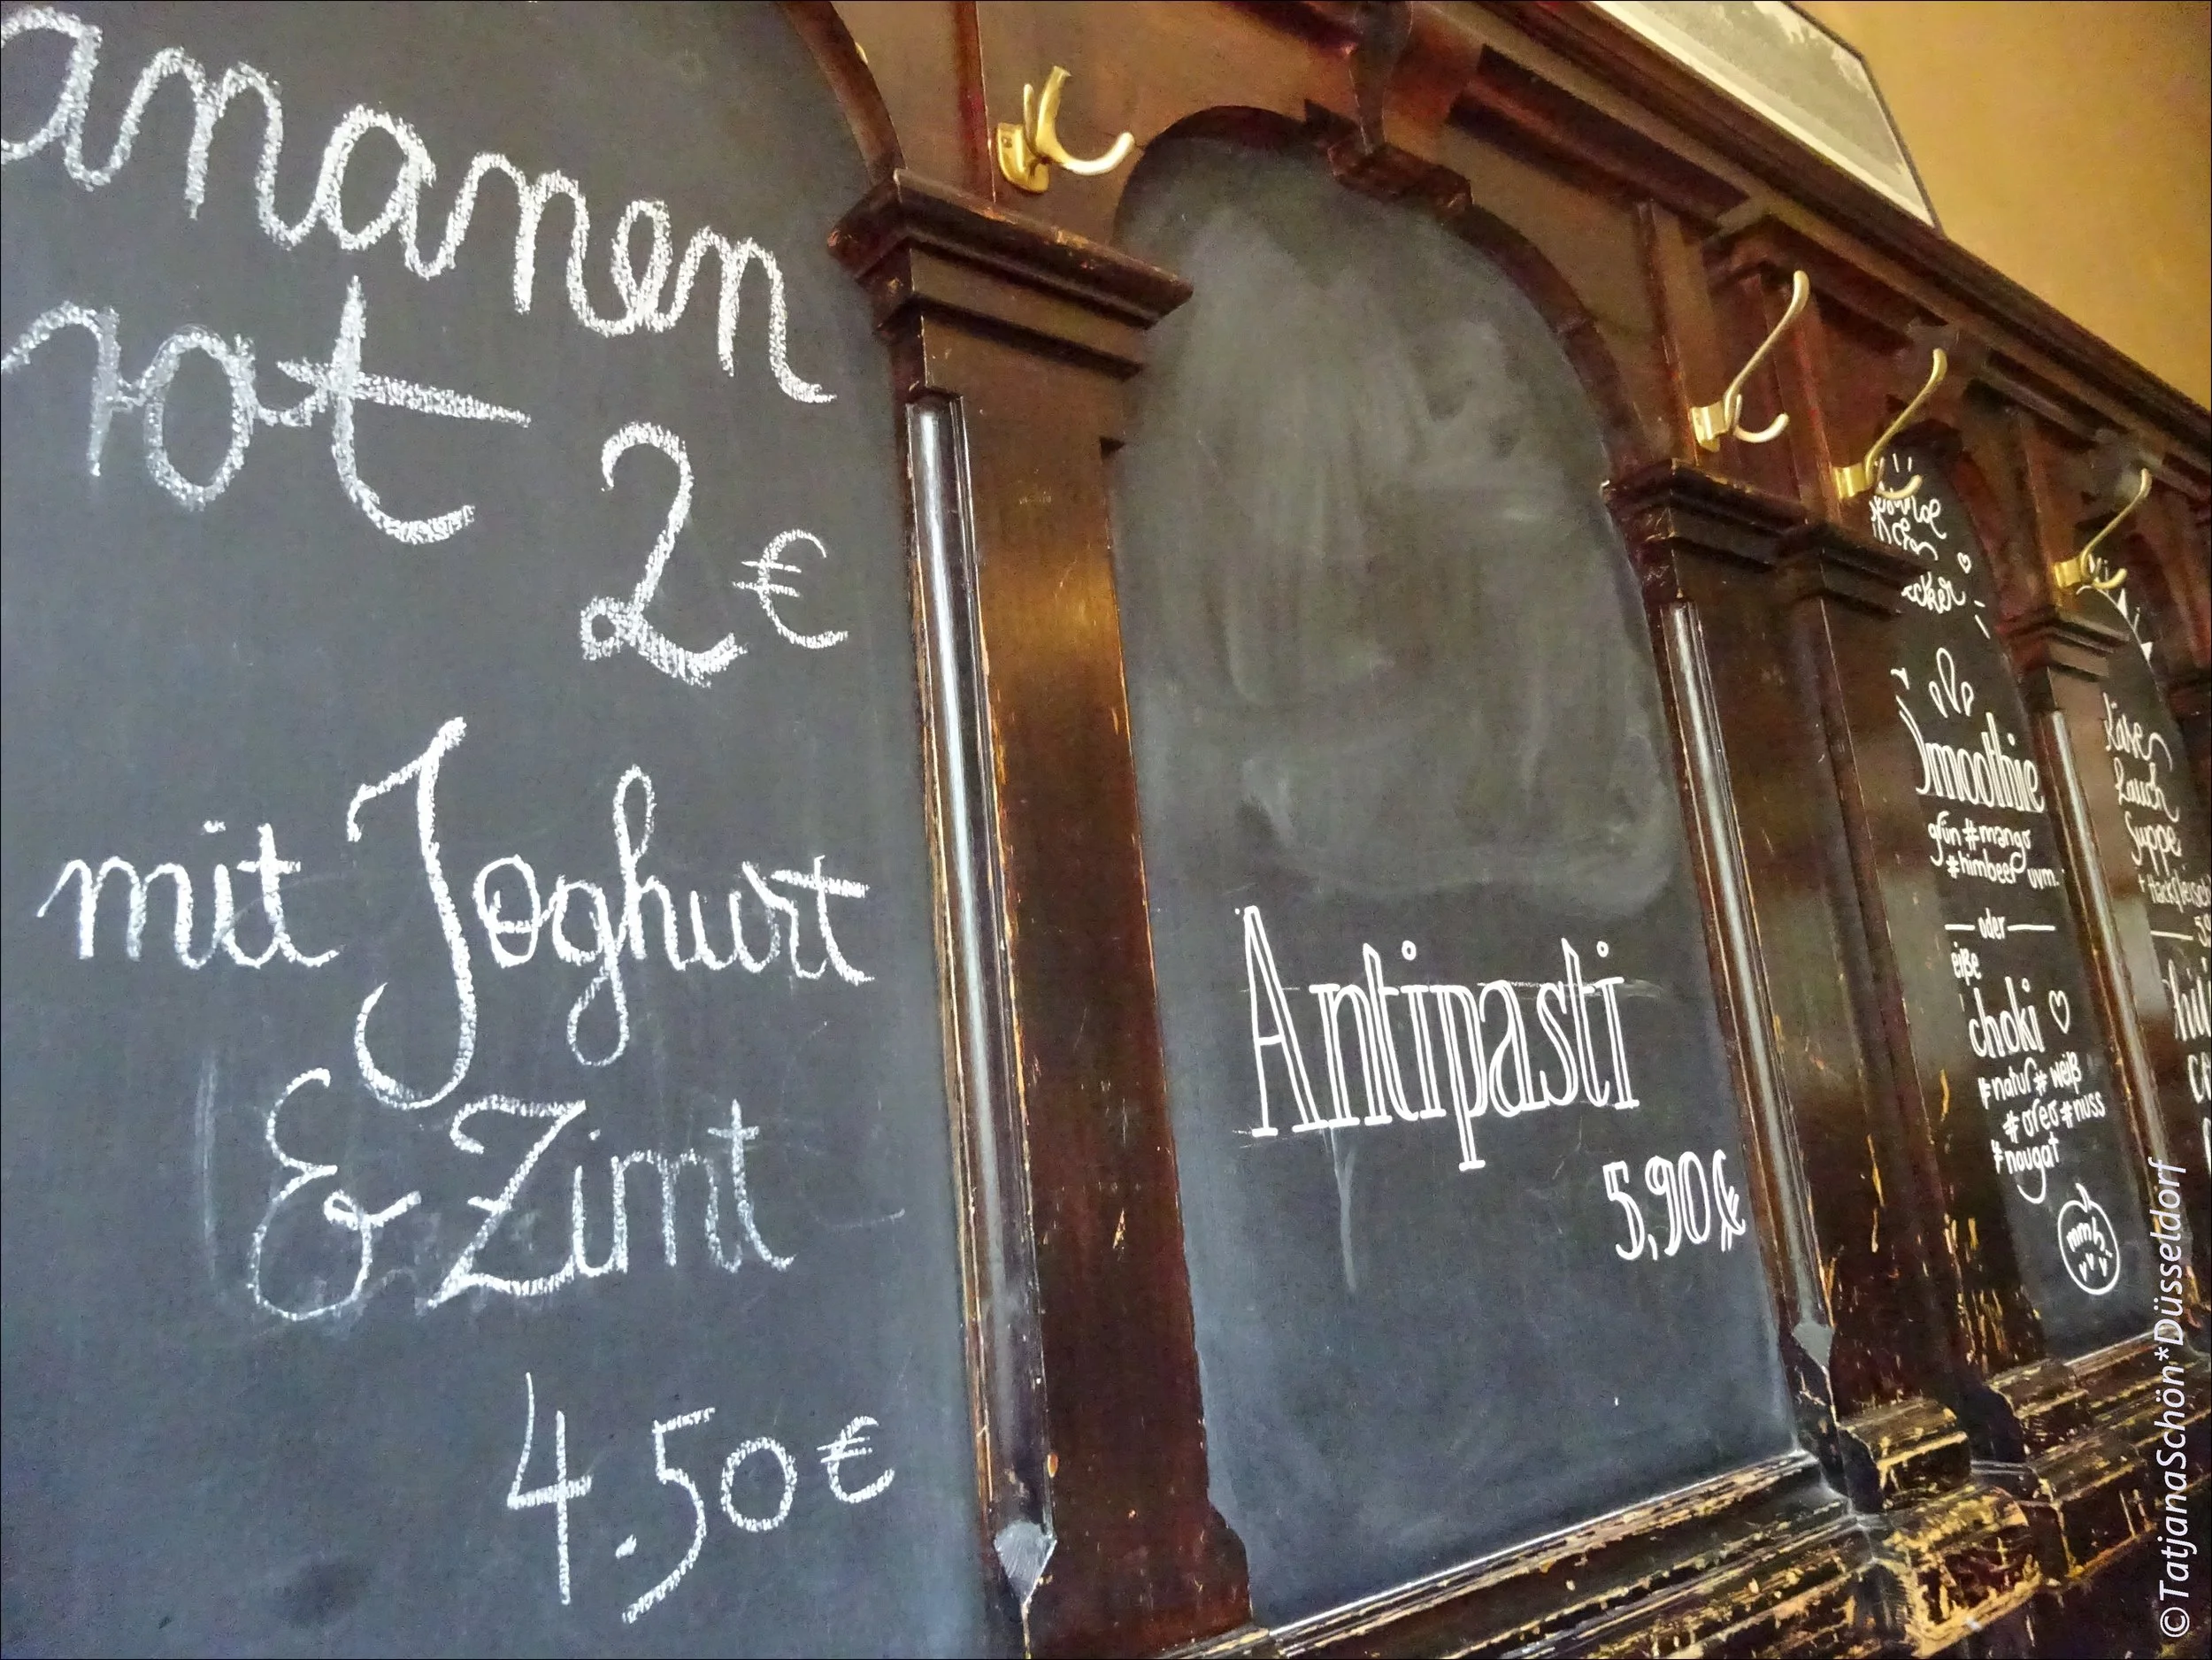 ananen
rot
2 €
mit Joghurt
& Zimt
4.50 €
Antipasti
5,90 €
cker
Smoothie
grün #mango
#himbeer uvm.
oder
choki
#natur #weiß
#oreo #nuss
#nougat
mmh
Käse
Lauch
Suppe
+ Hackfleisch
©TatjanaSchön*Düsseldorf